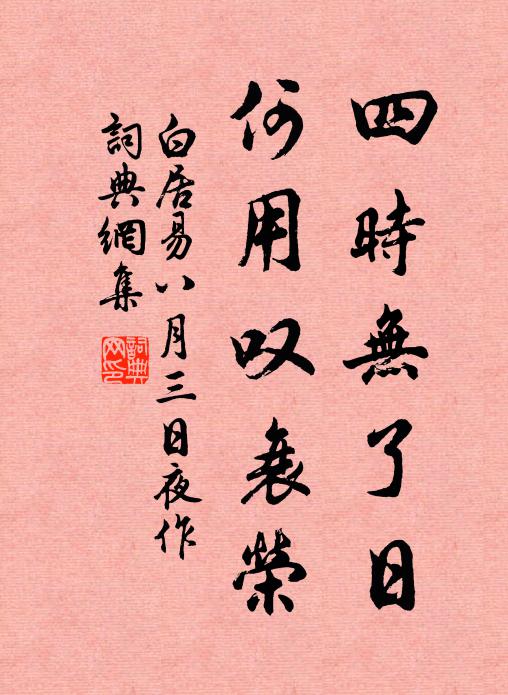 四時無了日
何用叹衰榮
白居易八月三日夜作
詞典網集
詞典網印